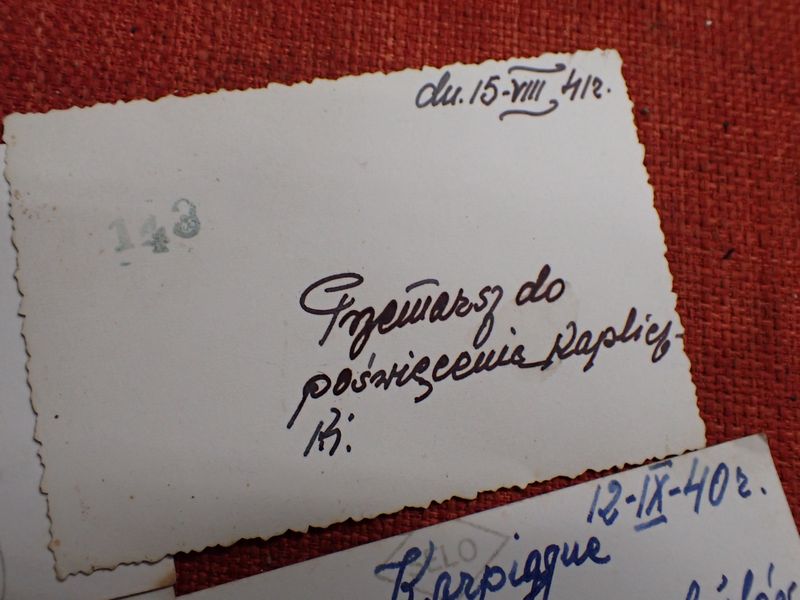 dn. 15-VIII 41r.
143
Przemarsz do
poświęcenia Kaplicz-
ki.
12-IX-40r.
Karpiągne